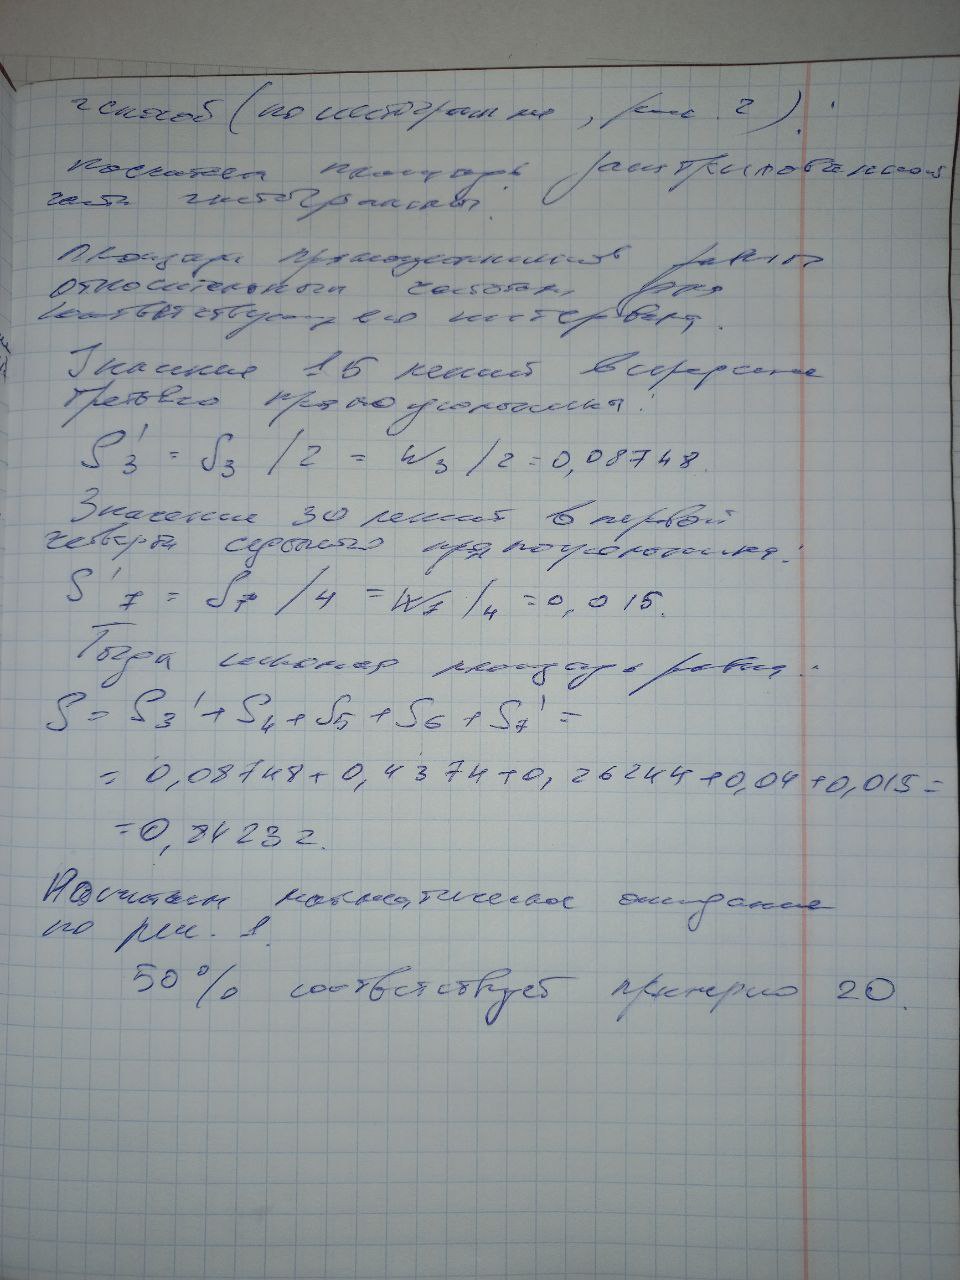 2 способ (по гистограмме, рис. 2):
Посчитаем площадь заштрихованной
части гистограммы.
Площади прямоугольников равны
относительным частотам для
соответствующего интервала.
Значение 15 лежит в середине
третьего прямоугольника:
S'3 = S3 /2 = W3 /2 = 0,08748.
Значение 30 лежит в первой
четверти седьмого прямоугольника:
S'7 = S7 /4 = W7 /4 = 0,015.
Тогда искомая площадь равна:
S = S3' + S4 + S5 + S6 + S7' =
= 0,08748 + 0,4374 + 0,26244 + 0,04 + 0,015 =
= 0,84232.
Посчитаем математическое ожидание
по рис. 1.
50% соответствует примерно 20.